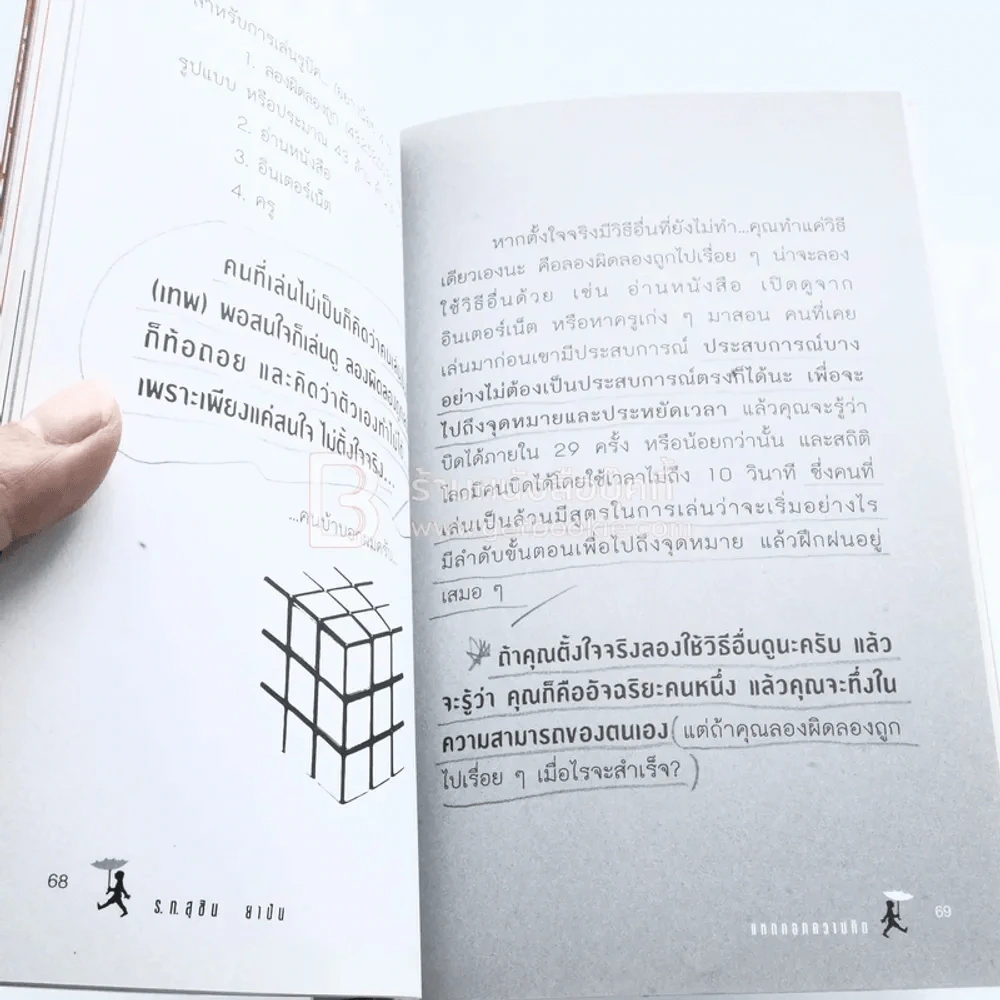 สำหรับการเล่นรูบิค...
1. ลองผิดลองถูก
รูปแบบ หรือประมาณ 43
2. อ่านหนังสือ
3. อินเตอร์เน็ต
4. ครู
คนที่เล่นไม่เป็นก็คิดว่าคนเล่น
(เทพ) พอสนใจก็เล่นดู ลองผิดลองถูก
ก็ท้อถอย และคิดว่าตัวเองทำไม่ได้
เพราะเพียงแค่สนใจ ไม่ตั้งใจจริง...
...คนบ้าบอกผมครับ...
68
ร.ท.สุชิน ยาปัน
หากตั้งใจจริงมีวิธีอื่นที่ยังไม่ทำ...คุณทำแค่วิธี
เดียวเองนะ คือลองผิดลองถูกไปเรื่อย ๆ น่าจะลอง
ใช้วิธีอื่นด้วย เช่น อ่านหนังสือ เปิดดูจาก
อินเตอร์เน็ต หรือหาครูเก่ง ๆ มาสอน คนที่เคย
เล่นมาก่อนเขามีประสบการณ์ ประสบการณ์บาง
อย่างไม่ต้องเป็นประสบการณ์ตรงก็ได้นะ เพื่อจะ
ไปถึงจุดหมายและประหยัดเวลา แล้วคุณจะรู้ว่า
บิดได้ภายใน 29 ครั้ง หรือน้อยกว่านั้น และสถิติ
โลกมีคนบิดได้โดยใช้เวลาไม่ถึง 10 วินาที ซึ่งคนที่
เล่นเป็นล้วนมีสูตรในการเล่นว่าจะเริ่มอย่างไร
มีลำดับขั้นตอนเพื่อไปถึงจุดหมาย แล้วฝึกฝนอยู่
เสมอ ๆ
ถ้าคุณตั้งใจจริงลองใช้วิธีอื่นดูนะครับ แล้ว
จะรู้ว่า คุณก็คืออัจฉริยะคนหนึ่ง แล้วคุณจะทึ่งใน
ความสามารถของตนเอง (แต่ถ้าคุณลองผิดลองถูก
ไปเรื่อย ๆ เมื่อไรจะสำเร็จ?)
แหกคอกความคิด
69
ร้านหนังสือบุ๊คกี้
www.getbookie.com